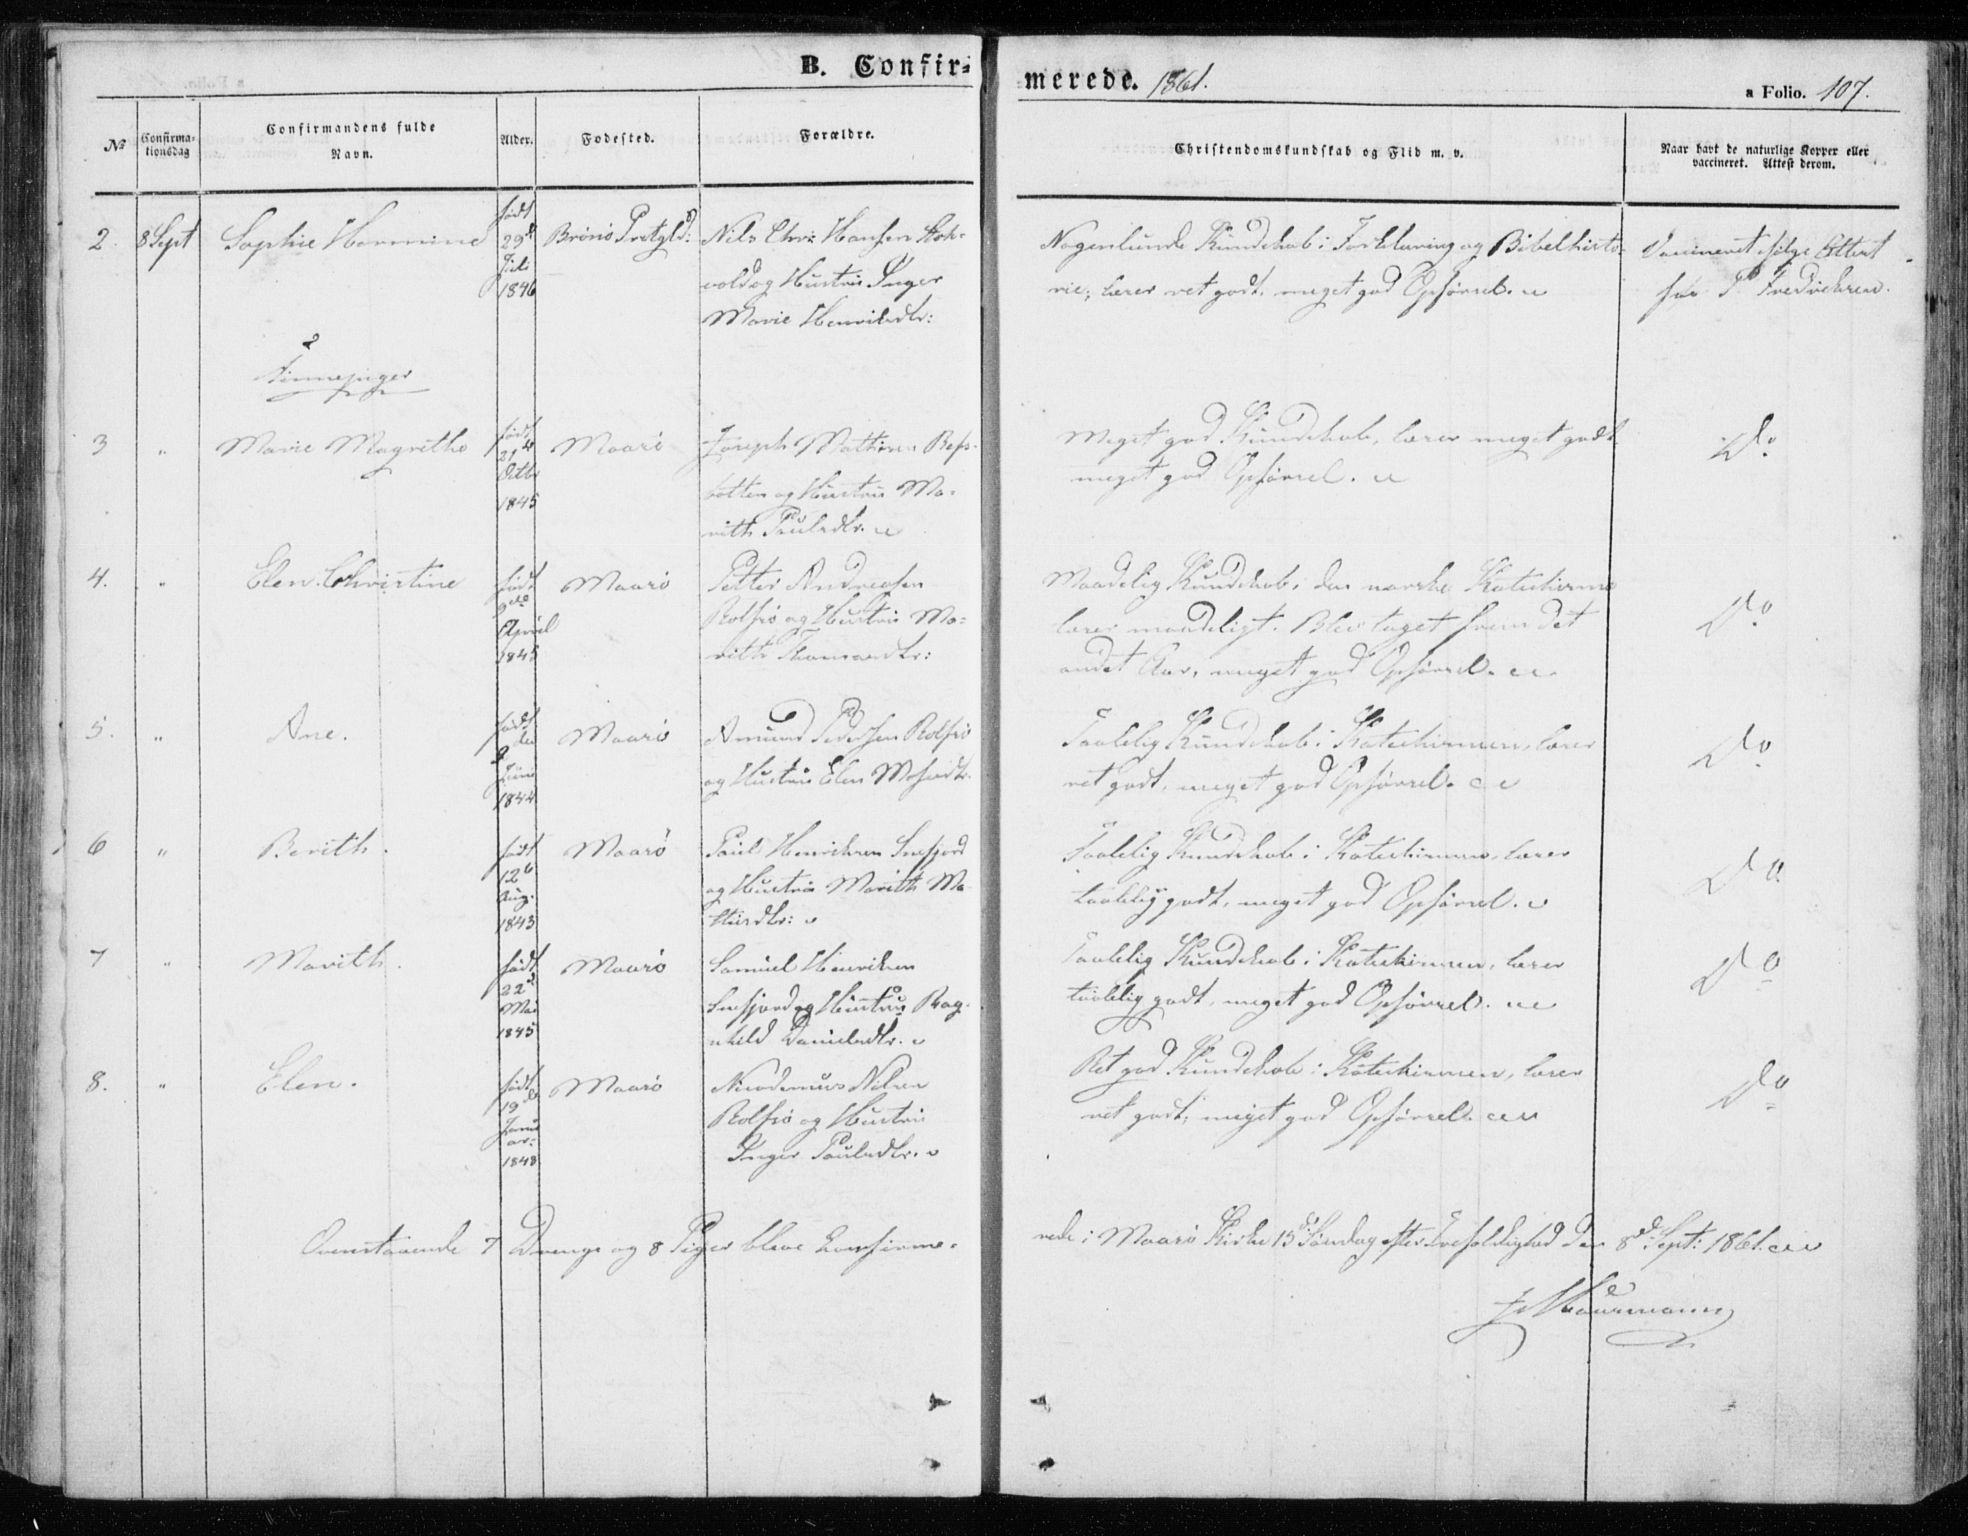 B. Confir-
merede. 1861.
a Folio. 107.
№
Confirma-
tionsdag
Confirmandens fulde
Navn.
Alder.
Fodested.
Forældre.
Christendomskundskab og Flid m. v.
Naar havt de naturlige Kopper eller
vaccineret. Attest derom.
2. 8 Sept Sophie Hermine
født
29d
Juli
1846
Brönö Prstgld:
Nils Chr. Hansen
og Hustru Inger
Marie Henriksdtr:
Nogenlunde Kundskab i Forklaring og Bibelhisto-
rie; læser ret godt, meget god Opførsel.
Vaccineret ifølge Attest
fra P. Fredriksen.
2
Finnepiger
3 " Marie Magrethe
født
21de
Octbr
1845
Maasö
Joseph Mathisen
botten og Hustru Ma-
rith Paulsdtr.
Meget god Kundskab, læser meget godt
meget god Opførsel.
Do
4. " Elen Christine
født
9de
April
1845
Maasö
Petter Andreasen
Rolfsö og Hustru Ma-
rith Thomasdtr:
Maadelig Kundskab i den norske Katekisme
læser maadeligt. Blev taget frem det
andet Aar, meget god Opførsel.
Do
5. " Ane.
født
Juni
1844
Maasö
Amund Pedersen Rolfsö
og Hustru Elen
Taalelig Kundskab i Katekismen, læser
ret godt, meget god Opførsel.
Do
6 " Berith.
født
12
Aug.
1843
Maasö
Paul Henriksen Snefjord
og Hustru Marith Ma-
Taalelig Kundskab i Katekismen, læser
taalelig godt, meget god Opførsel.
Do
7 " Marith.
født
22d
Mai
1845
Maasö
Samuel Henriksen
Snefjord og Hustru Rag-
nhild Danielsdtr.
Taalelig Kundskab i Katekismen, læser
taalelig godt, meget god Opførsel.
Do
8. " Elen.
født
19de
Janu
ar:
1848
Maasö
Nicodemus Nilsen
Rolfsö og Hustru
Inger Paulsdtr.
Ret god Kundskab i Katekismen, læser
ret godt, meget god Opførsel.
Do
Ovenstaaende 7 Drenge og 8 Piger bleve konfirme-
rede i Maasö Kirke 15d Søndag efter Trefoldighed den 8d Sept: 1861.